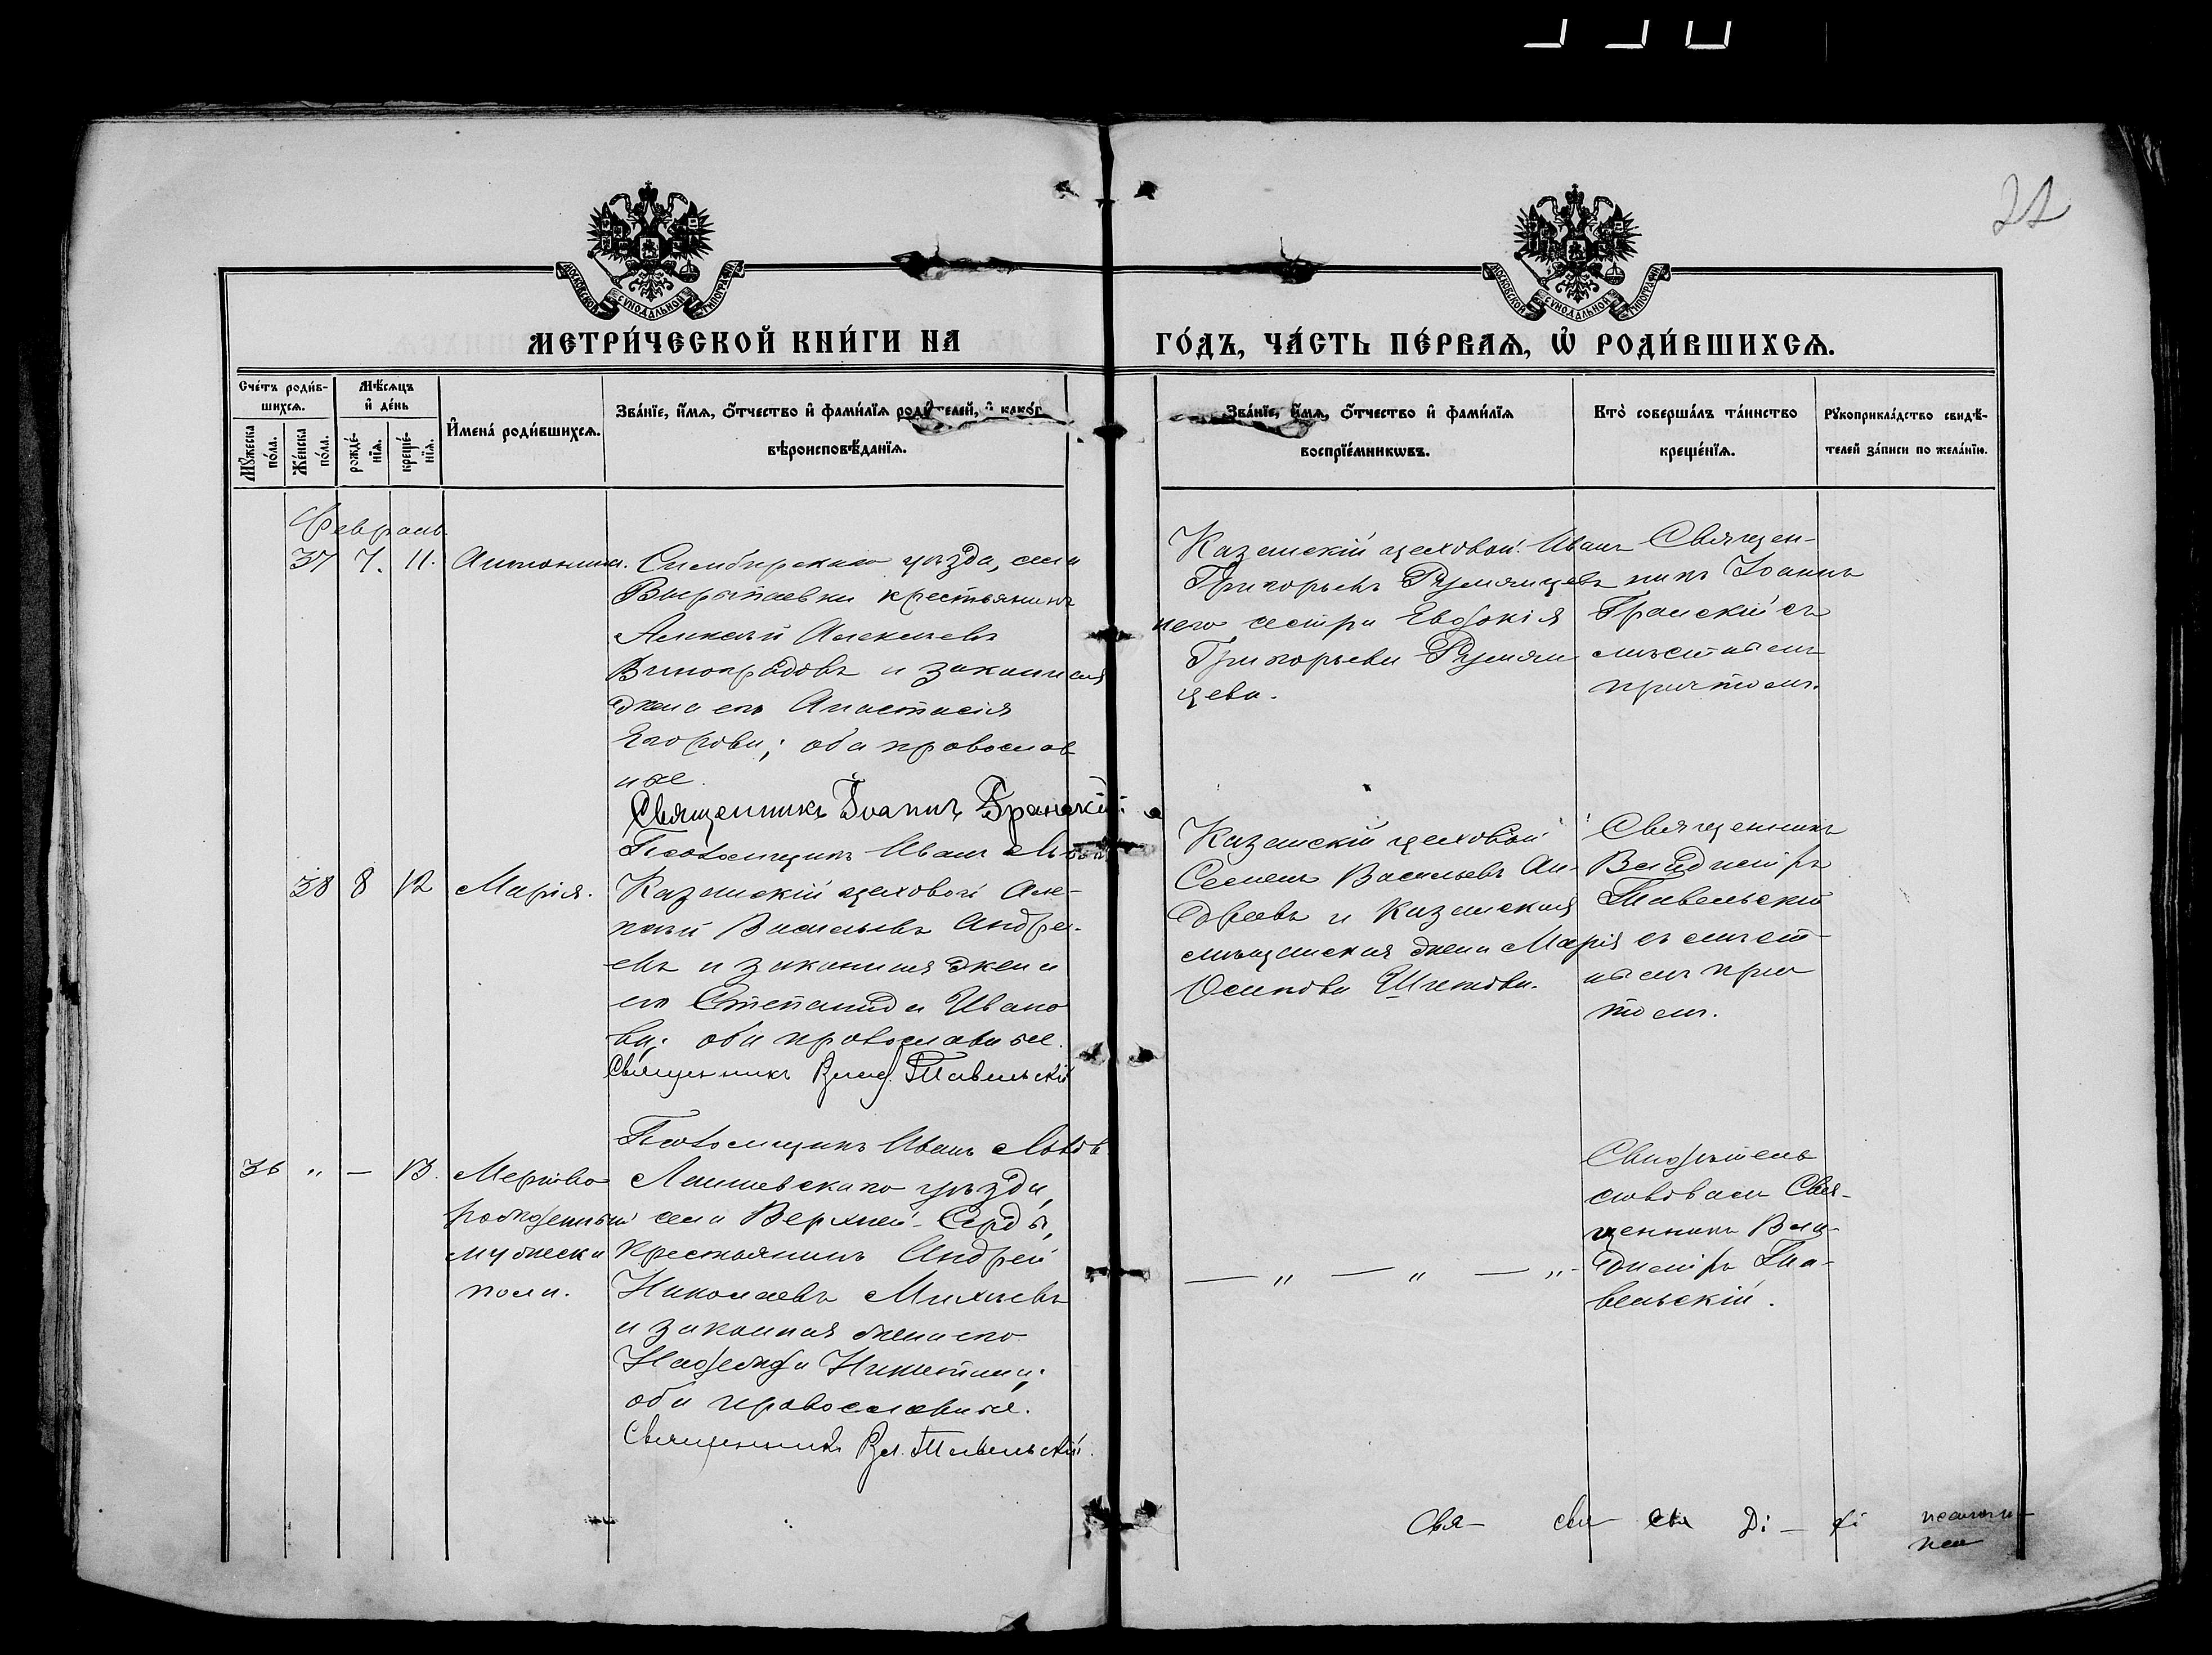 22
МОСКОВСКОЙ СѴНОДАЛЬНОЙ ТИПОГРАФІИ
МОСКОВСКОЙ СѴНОДАЛЬНОЙ ТИПОГРАФІИ
МЕТРИ́ЧЕСКОЙ КНИ́ГИ НА
ГО́ДЪ, ЧА́СТЬ ПЕ́РВАѦ, Ѡ҆ РОДИ́ВШИХСѦ.
Сче́тъ роди́в-
шихсѧ.
Мѣ́сѧцъ
и҆ де́нь
Мꙋ́жеска
по́ла.
Же́нска
по́ла.
рожде́-
нїѧ.
креще́-
нїѧ.
И҆мена̀ роди́вшихсѧ.
Зва́нїе, и҆́мѧ, ѻ҆́тчество и҆ фами́лїѧ роди́телей, и҆ како́г
вѣроисповѣ́данїѧ.
Зва́нїе, и҆́мѧ, ѻ҆́тчество и҆ фами́лїѧ
воспрїе́мникѡвъ.
Кто̀ соверша́лъ та́инство
креще́нїѧ.
Рꙋкоприкла́дство свидѣ́-
телей за́писи по жела́нїю.
Февраль.
37 7. 11. Антонина.
Симбирскаго уѣзда, села
Вырыпаевки крестьянинъ
Алексѣй Алексѣевъ
Виноградовъ и законная
жена его Анастасія
Егорова; оба православ
ные.
Священникъ Іоаннъ Гранскій
Псаломщикъ Иванъ
Казанскій цеховой Иванъ
Григорьевъ Румянцевъ
его сестра Евдокія
Григорьева Румян
цева.
Священ-
никъ Іоаннъ
Гранскій съ
мѣстнымъ
причтомъ.
38 8 12 Марія.
Казанскій цеховой Але-
ксѣй Васильевъ Андре-
евъ и законная жена
его Степанида Ивано
ва; оба православные.
Священникъ Влад. Тавельскій
Псаломщикъ Иванъ
Казанскій цеховой
Семенъ Васильевъ Ан-
дреевъ и Казанская
мѣщанская жена Марія
Осипова Щитова.
Священникъ
Владиміръ
Тавельскій
съ мѣст
нымъ прич
томъ.
36 " — 13. Мертво
рожденный
мужеска
пола.
Лаишевскаго уѣзда,
села Верхней-Серды,
крестьянинъ Андрей
Николаевъ Михѣевъ
и законная жена его
Надежда Никитина;
оба православные.
Священникъ Вл. Тавельскій.
— " — " — " -
Свидѣтель
ствовалъ Свя-
щенникъ Вла-
диміръ Та-
вельскій.
Свя- свя- свя Ді-